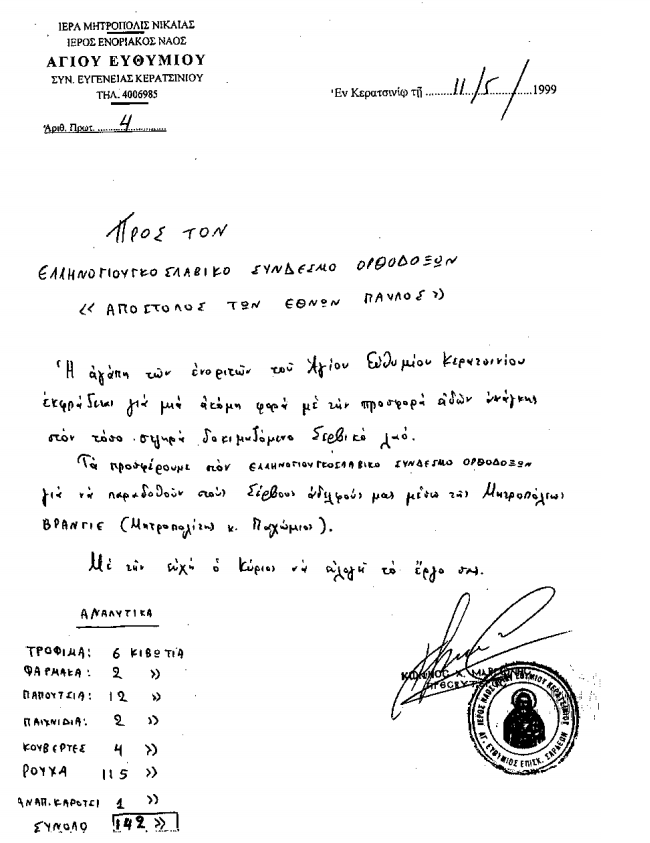 ΙΕΡΑ ΜΗΤΡΟΠΟΛΙΣ ΝΙΚΑΙΑΣ
ΙΕΡΟΣ ΕΝΟΡΙΑΚΟΣ ΝΑΟΣ
ΑΓΙΟΥ ΕΥΘΥΜΙΟΥ
ΣΥΝ. ΕΥΓΕΝΕΙΑΣ ΚΕΡΑΤΣΙΝΙΟΥ
ΤΗΛ. 4006985
Ἀριθ. Πρωτ. 4
Ἐν Κερατσινίῳ τῇ 11/5/1999
ΠΡΟΣ ΤΟΝ
ΕΛΛΗΝΟΓΙΟΥΓΚΟΣΛΑΒΙΚΟ ΣΥΝΔΕΣΜΟ ΟΡΘΟΔΟΞΩΝ
«ΑΠΟΣΤΟΛΟΣ ΤΩΝ ΕΘΝΩΝ ΠΑΥΛΟΣ»
Ἡ ἀγάπη τῶν ἐνοριτῶν τοῦ Ἁγίου Εὐθυμίου Κερατσινίου
ἐκφράζεται γιά μιά ἀκόμη φορά μέ τήν προσφορά εἰδῶν ἀνάγκης
στόν τόσο σκληρά δοκιμαζόμενο Σερβικό λαό.
Τά προσφέρουμε στόν ΕΛΛΗΝΟΓΙΟΥΓΚΟΣΛΑΒΙΚΟ ΣΥΝΔΕΣΜΟ ΟΡΘΟΔΟΞΩΝ
γιά νά παραδοθοῦν στούς Σέρβους ἀδελφούς μας μέσω τῆς Μητροπόλεως
ΒΡΑΝΓΙΕ (Μητροπολίτης κ. Παχώμιος).
Μέ τήν εὐχή ὁ Κύριος νά εὐλογῇ τό ἔργο σας.
ΑΝΑΛΥΤΙΚΑ
ΤΡΟΦΙΜΑ: 6 ΚΙΒΩΤΙΑ
ΦΑΡΜΑΚΑ: 2 »
ΠΑΠΟΥΤΣΙΑ: 12 »
ΠΑΙΧΝΙΔΙΑ: 2 »
ΚΟΥΒΕΡΤΕΣ 4 »
ΡΟΥΧΑ 115 »
ΑΝΑΠ. ΚΑΡΟΤΣΙ 1 »
ΣΥΝΟΛΟ 142 »
ΙΕΡΟΣ ΝΑΟΣ ΑΓ. ΕΥΘΥΜΙΟΥ ΚΕΡΑΤΣΙΝΙΟΥ
ΑΓ. ΕΥΘΥΜΙΟΣ ΕΠΙΣΚ. ΣΑΡΔΕΩΝ